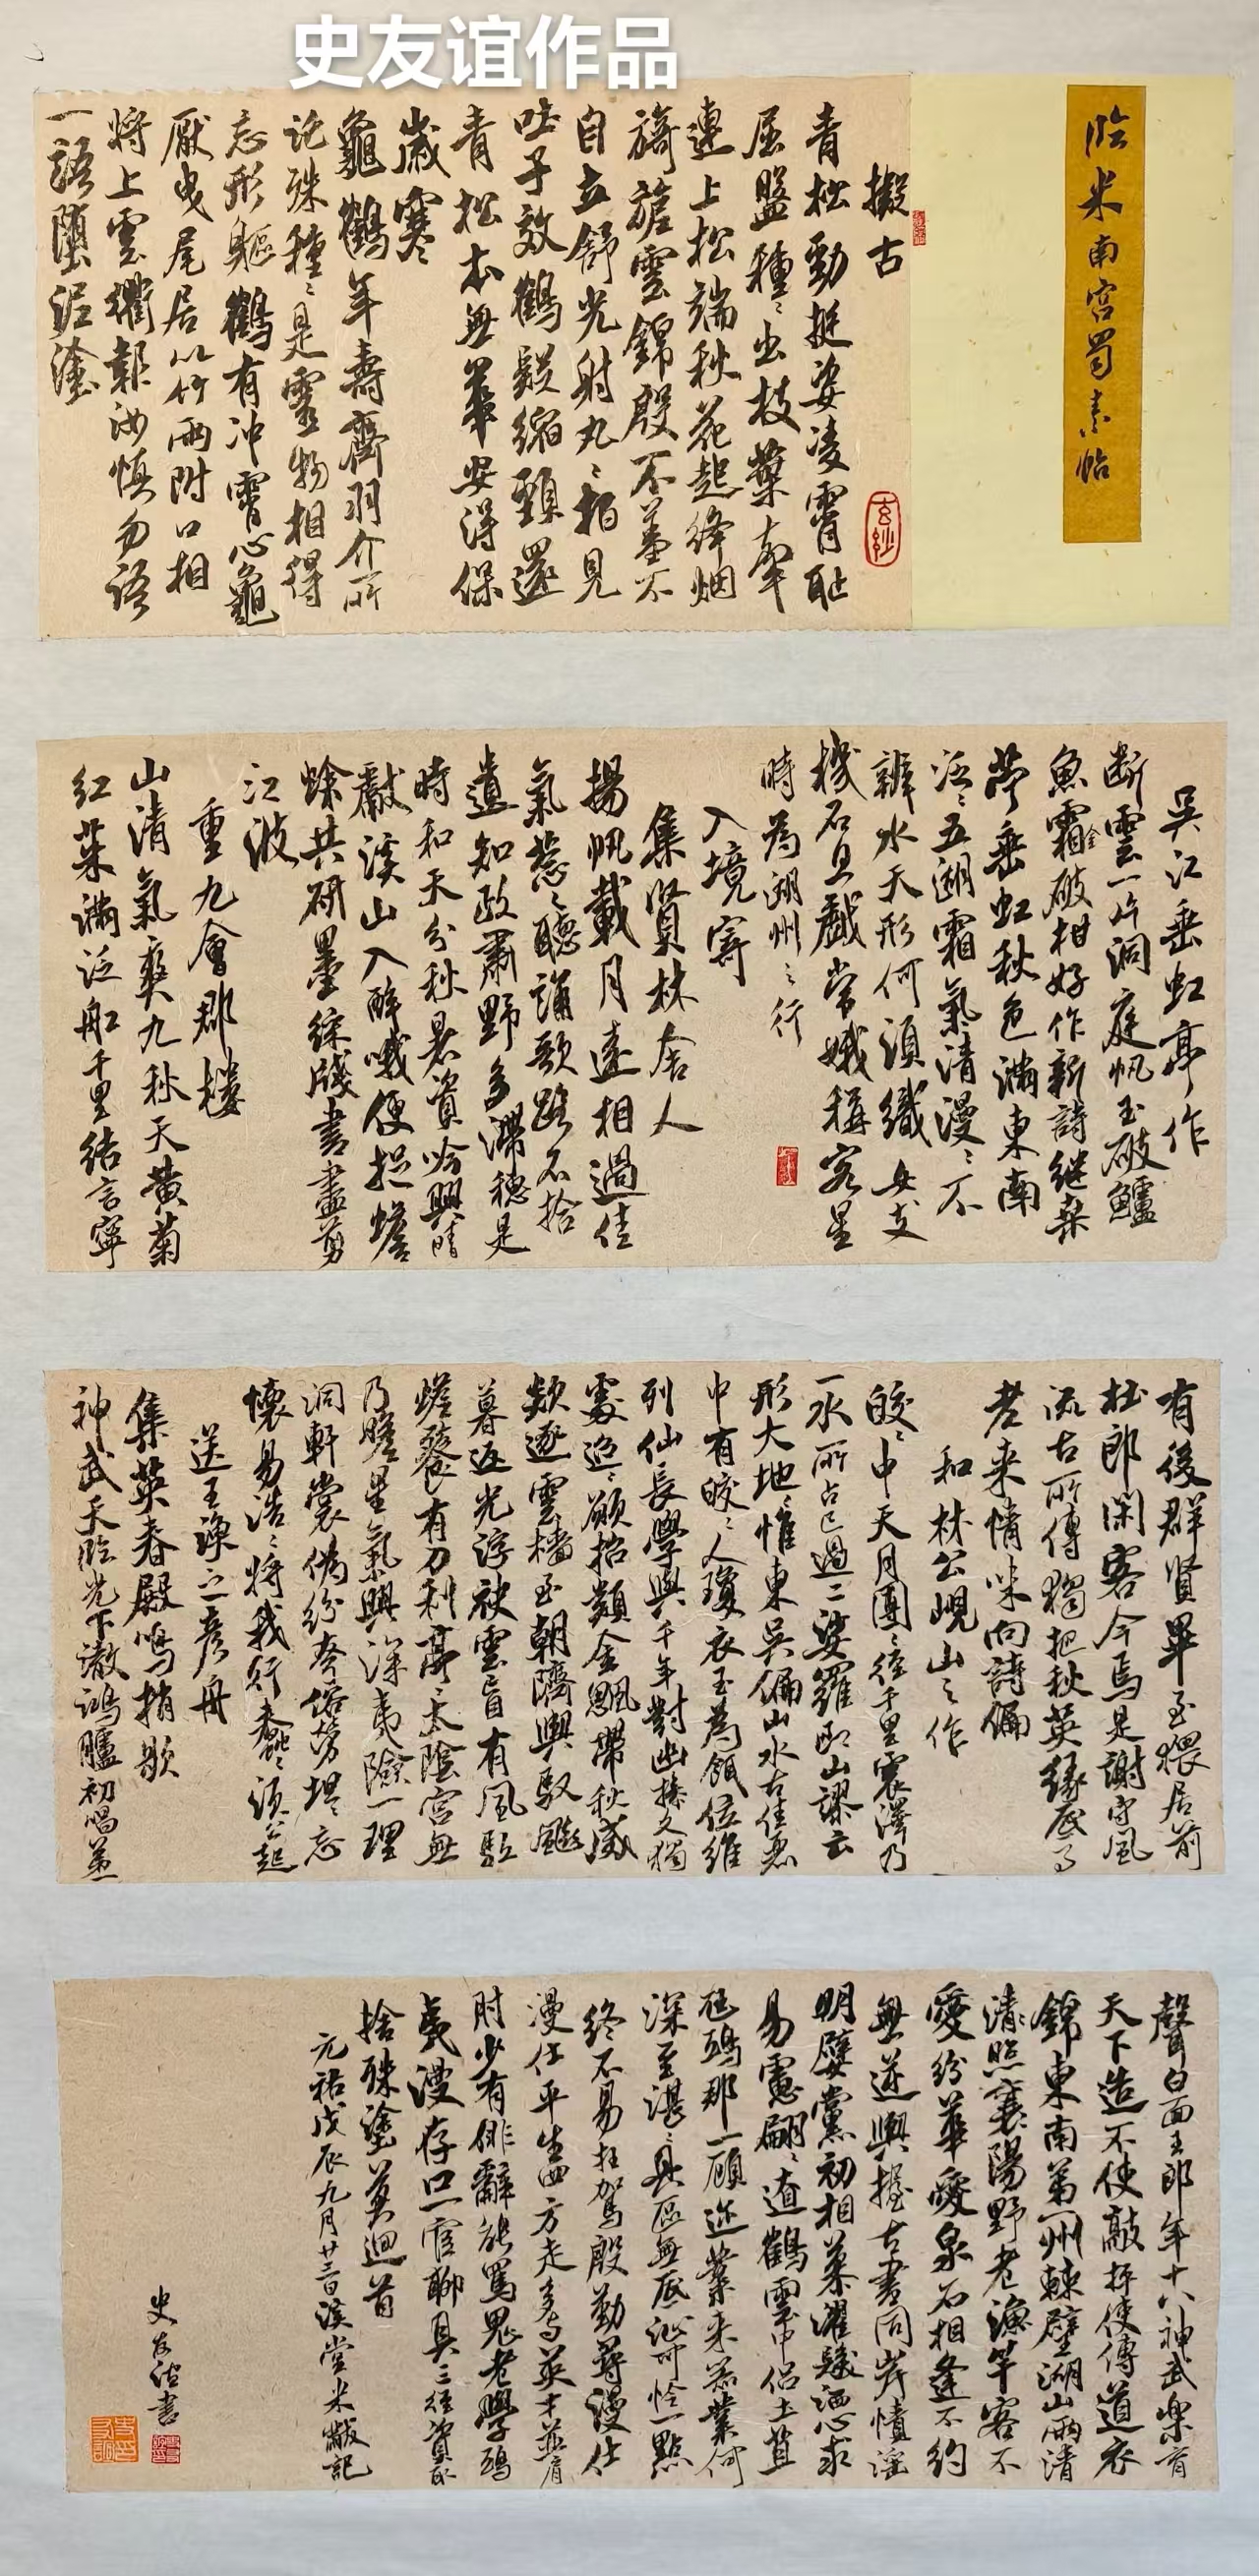 史友谊作品
临米南宫蜀素帖
擬古
青松勁挺姿凌霄恥
屈盤種〻出枝葉牽
連上松端秋花起絳烟
旖旎雲錦殷不羞不
自立舒光射丸〻柏見
吐子效鶴疑縮頸還
青松本無華安得保
歲寒
龜鶴年壽齊羽介所
託殊種〻是靈物相得
忘形軀鶴有冲霄心龜
厭曳尾居以竹兩附口相
將上雲衢報汝慎勿語
一語墮泥塗
玄紗
吳江垂虹亭作
断雲一片洞庭帆玉破鱸
魚霜金破柑好作新詩继桑
苧垂虹秋色滿東南
泛〻五湖霜氣清漫〻不
辨水天形何須織女支
機石且戲常娥稱客星
時為湖州之行
入境寄
集賢林舍人
揚帆載月遠相過佳
氣葱〻聽誦歌路不拾
遺知政肅野多滯穗是
時和天分秋暑資吟興晴
獻溪山入醉哦便捉蟾
蜍共研墨綵牋書盡剪
江波
重九會郡樓
山清氣爽九秋天黄菊
红茱滿泛船千里結言寧
有後群賢畢至猥居前
杜郎闲客今焉是謝守風
流古所傳獨把秋英缘底事
老来情味向詩偏
和林公峴山之作
皎〻中天月團〻徑千里震澤乃
一水所占已過二娑羅即山謬云
形大地〻惟東吳偏山水古佳麗
中有皎〻人瓊衣玉為餌位維
列仙長學與千年對幽操久獨
處迢〻願招類金颸帶秋威
欻逐雲檣至朝隮輿馭飈
暮返光浮袂雲盲有風馭
蟾餮有刀利亭〻太陰宫無
乃瞻星氣興深夷險一理
洞軒裳偽纷夸俗勞坦〻忘
懷易浩〻將我行蠢〻須公起
送王渙之彦舟
集英春殿鳴捎歇
神武天臨光下澈鴻臚初唱第
聲白面王郎年十八神武樂育
天下造不使敲枰使傳道衣
錦東南第一州棘壁湖山兩清
清〻照襄陽野老漁竿客不
愛纷華愛泉石相逢不约
無逆與握古書同岸幘淫
明嬖黨初相慕濯髮洒心求
易慮翩〻遼鶴雲中侣土苴
尪鴟那一顧迩業来器業何
深至湛〻具區無底沚可怜一點
终不易枉駕殷勤尋漫仕
漫仕平生四方走多与英才並肩
肘少有俳辭能罵鬼老學鴟
夷漫存口一官聊具三径資取
捨殊塗莫迴首
元祐戊辰九月廿三日溪堂米黻記
史友谊書